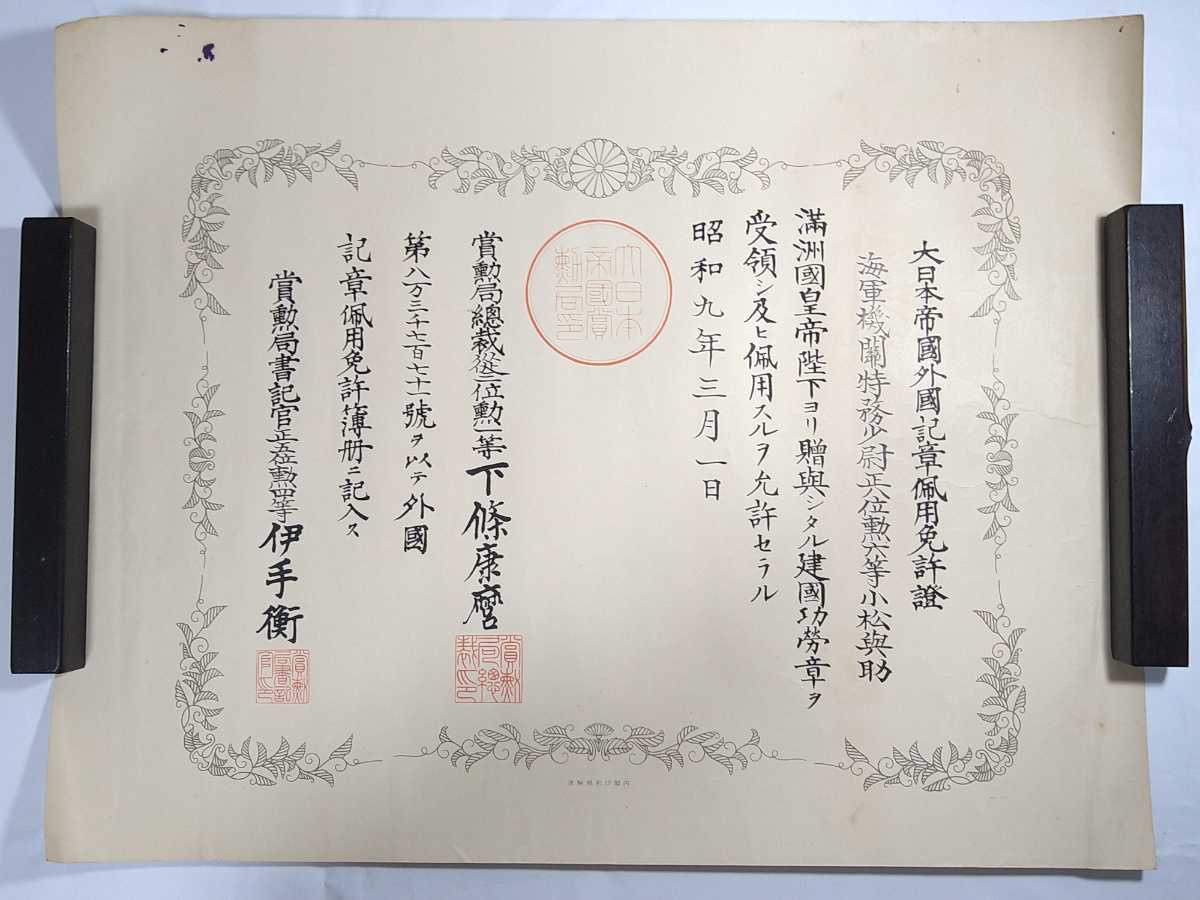 大日本帝國外國記章佩用免許證
海軍機關特務少尉正八位勲六等小松與助
滿洲國皇帝陛下ヨリ贈與シタル建國功勞章ヲ
受領シ及ヒ佩用スルヲ允許セラル
昭和九年三月一日
大日本帝國賞勲局印
賞勲局總裁從三位勲一等下條康麿
賞勲局總裁印
第八万三千七百七十一號ヲ以テ外國
記章佩用免許簿册ニ記入ス
賞勲局書記官正五位勲四等伊手衡
賞勲局書記官印
内閣印刷局製造